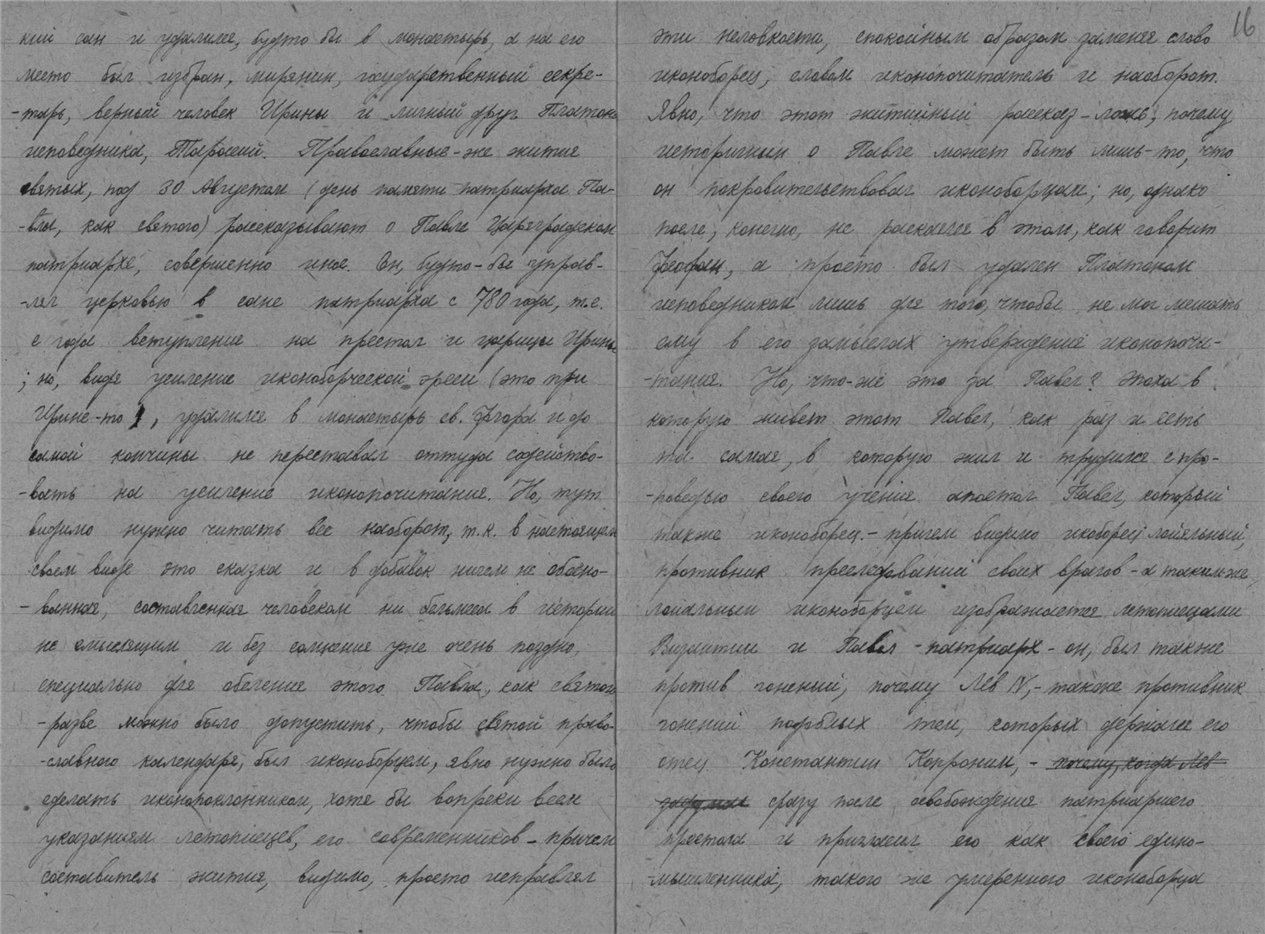 кий сан и удалился, будто бы в монастырь, а на его
место был избран, мирянин, государственный секре-
-тарь, верный человек Ирины и личный друг Платона
исповедника, Тарасий. Православные-же жития
святых, под 30 Августом (день памяти патриарха Па-
-вла, как святого) рассказывают о Павле Цареградском
патриархе, совершенно иное. Он, будто-бы управ-
-лял церковью в сане патриарха с 780 года, т.е.
с года вступления на престол и царицы Ирины
; но, видя усиление иконоборческой ереси (это при
Ирине-то), удалился в монастырь св. Флора и до
самой кончины не переставал оттуда содейство-
-вать на усиление иконопочитания. Но, тут
видимо нужно читать все наоборот, т.к. в настоящем
своем виде это сказка и в добавок ничем не обосно-
-ванная, составленная человеком ни бельмеса в истории
не смыслящим и без сомнения уже очень поздно,
специально для обеления этого Павла, как святого
-разве можно было допустить, чтобы святой право-
-славного календаря, был иконоборцем, явно нужно было
сделать иконопоклонником, хотя бы вопреки всем
указаниям летописцев, его современников - причем
составитель жития, видимо, просто исправлял
16
эти неловкости, спокойным образом заменяя слово
иконоборец, словом иконопочитатель и наоборот.
Явно, что этот житийный рассказ - ложь, почему
историчным о Павле может быть лишь-то, что
он покровительствовал иконоборцам; но, однако
после, конечно, не раскаялся в этом, как говорит
Феофан, а просто был удален Платоном
исповедником лишь для того, чтобы не мог мешать
ему в его замыслах утверждения иконопочи-
-тания. Но, что-же это за Павел? Эпоха в
которую живет этот Павел, как раз и есть
та самая, в которую жил и трудился с про-
-поведью своего учения апостол Павел, который
также иконоборец. - причем видимо икоборец лояльный,
противник преследований своих врагов - а таким-же
лояльным иконоборцем изображается летописцами
Византии и Павел - патриарх - он, был также
против гонений, почему Лев IV, - также противник
гонений подобных тем, которых держался его
отец Константин Копроним, - почему, когда Лев
сразу после освобождения патриаршего
престола и пригласил его как своего едино-
-мышленника, такого же умеренного иконоборца